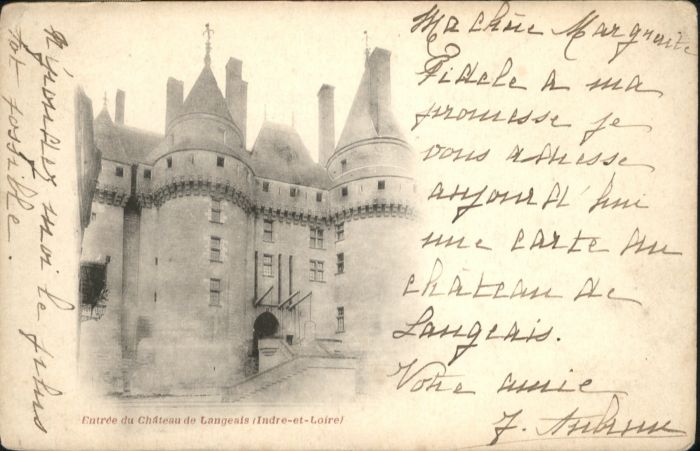 Ma chère Marguerite
Fidele à ma
promesse je
vous adresse
aujourd'hui
une carte du
château de
Langeais.
Votre amie
Répondez moi le plus
tot possible.
Entrée du Château de Langeais (Indre-et-Loire)